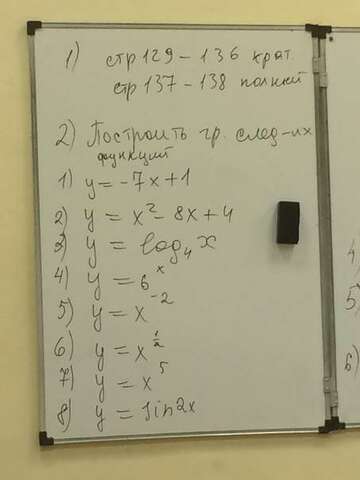 1) стр 129 – 136 крат.
стр 137 – 138 полный
2) Построить гр. след-их
функций
1) y = -7x + 1
2) y = x² - 8x + 4
3) y = log₄ x
4) y = 6ˣ
5) y = x⁻²
6) y = x^½
7) y = x⁵
8) y = sin 2x
4
5)
6)